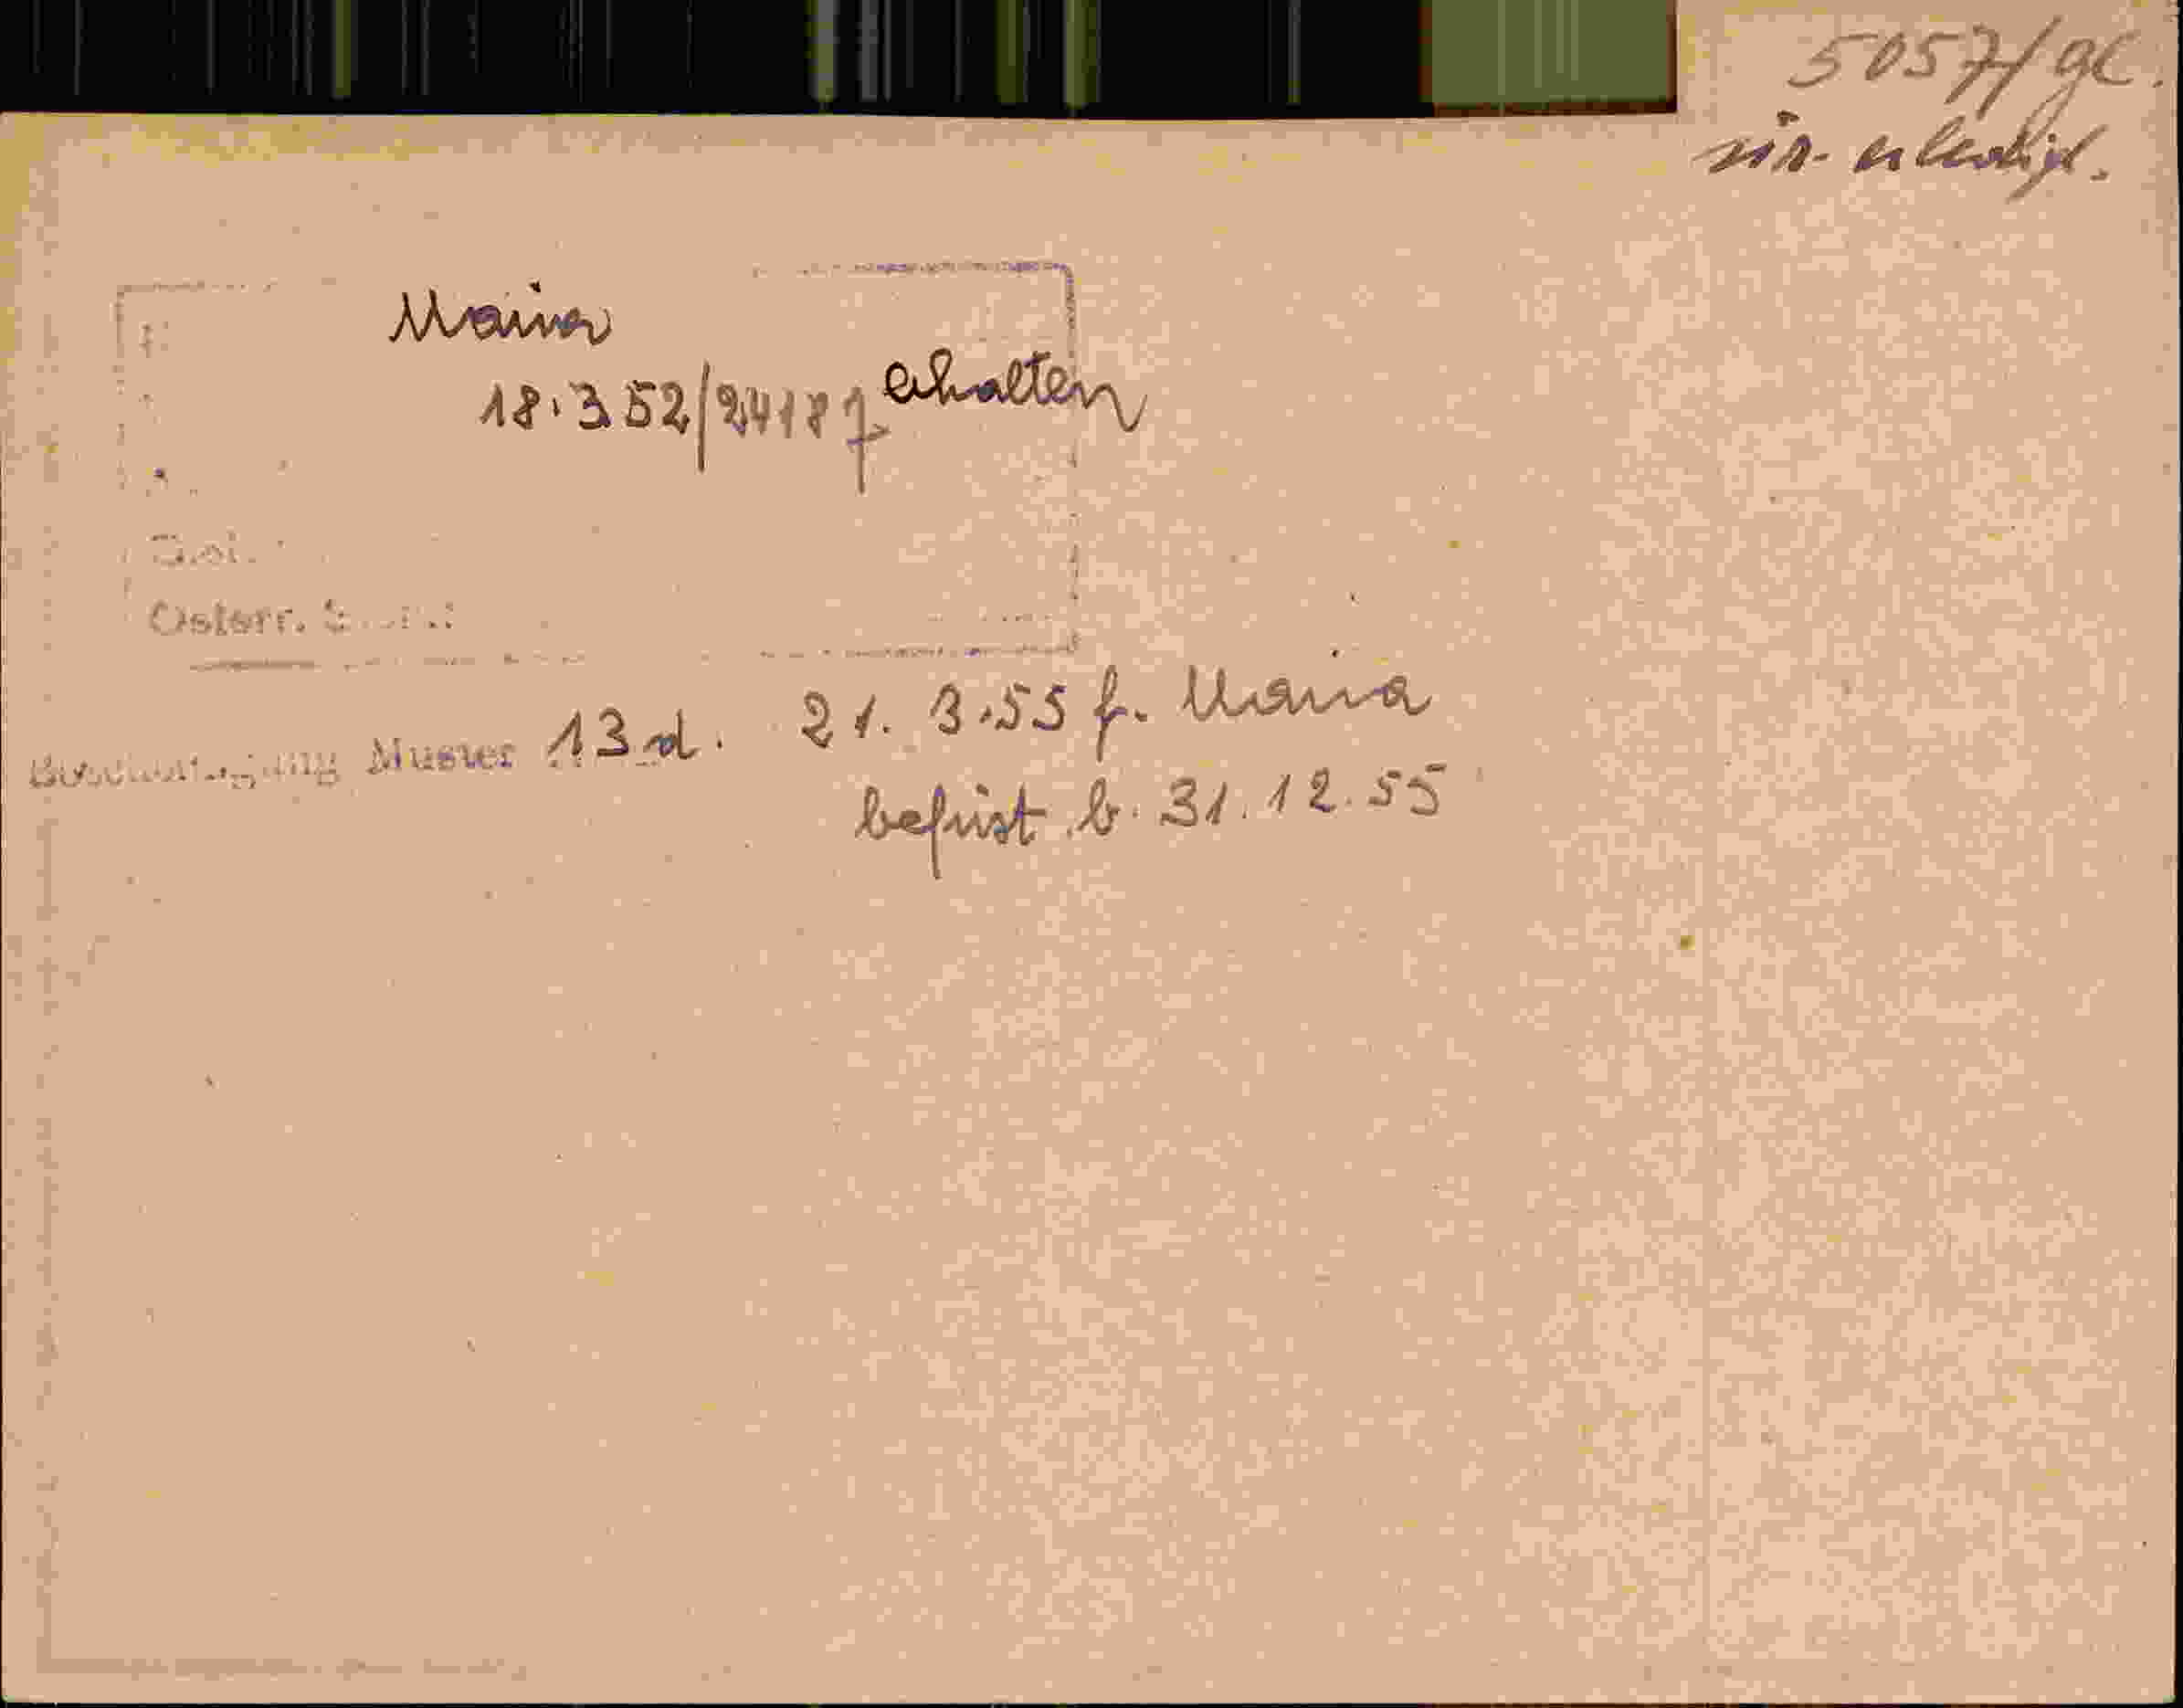 5057/gl.
erledigt.
Maria
18.352/2418 erhalten
Österr.
Bescheinigung Muster 13 d. 21. 3.55 f. Maria
befrist b. 31.12.55